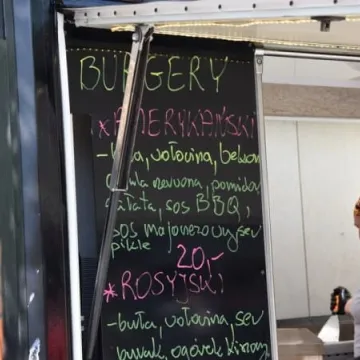 BURGERY
*AMERYKAŃSKI
-buła, wołowina, bekon
cebula czerwona, pomidor
sałata, sos BBQ,
sos majonezowy, ser
pikle 20,-
*ROSYJSKI
-buła, wołowina, ser
burak, ogórek kiszony